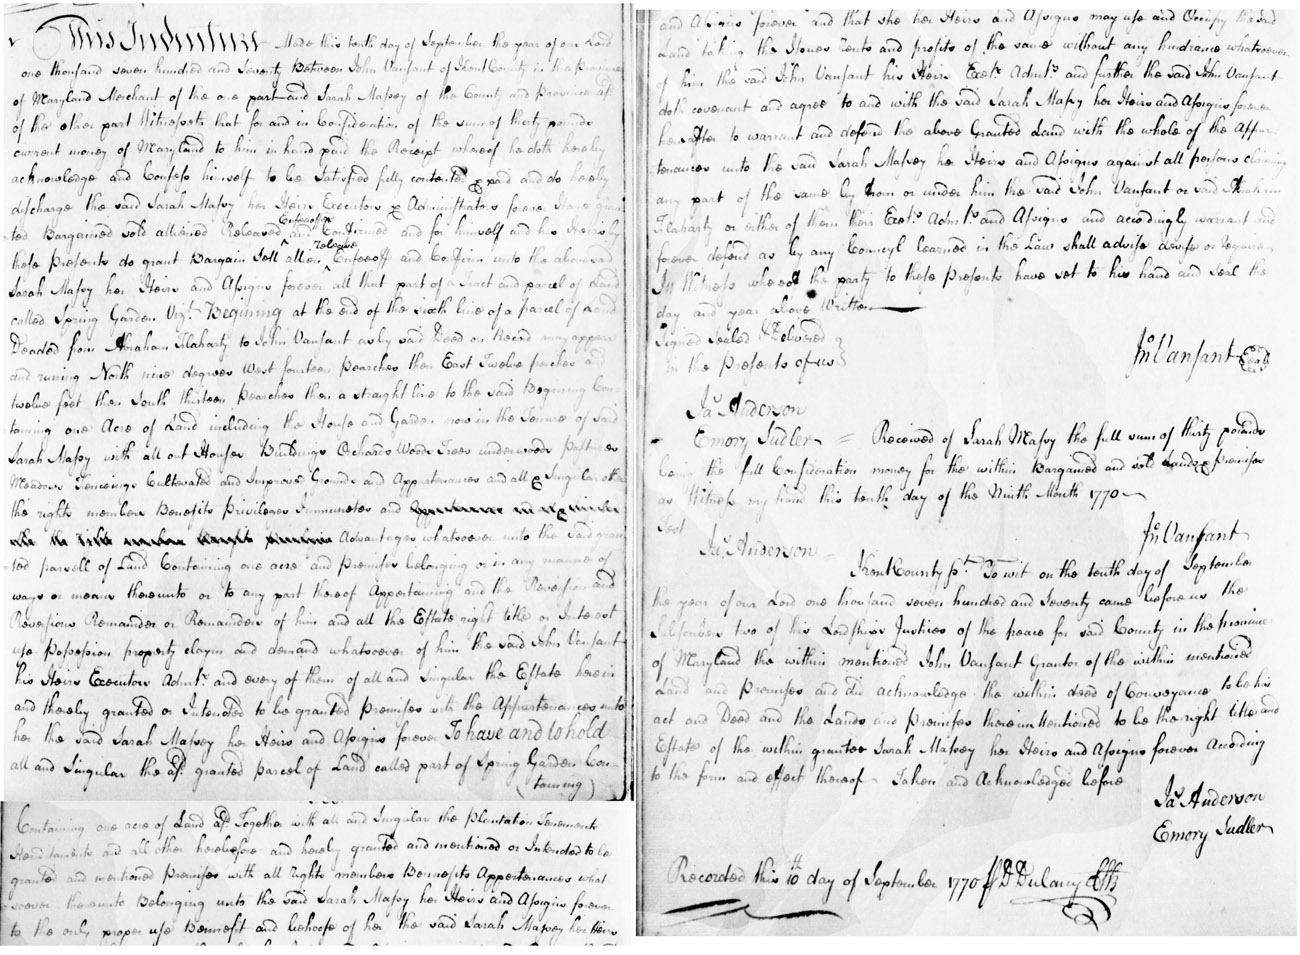 This Indenture Made this tenth day of September the year of our Lord
one thousand seven hundred and Seventy Between John Vansant of Kent County in the Province
of Maryland Merchant of the one part and Sarah Massey of the County and Province afs.
of the other part Witnesseth that for and in Consideration of the sum of thirty pounds
current money of Maryland to him in hand paid the Receipt whereof he doth hereby
acknowledge and Confess himself to be Satisfied fully contented & paid and do hereby
discharge the said Sarah Massy her Heirs Executors & Administrators forever have gran
Enfeoffed
ted Bargained sold alliened Released and Confirmed and for himself and his Heirs by
release
these Presents do grant Bargain Sell allien Enfeoff and Confirm unto the abovesaid
Sarah Massy her Heirs and Assigns forever all that part of a Tract and parcel of Land
called Spring Garden Viz. Begining at the end of the sixth line of a parcel of Land
Deeded from Abraham Flaharty to John Vansant as by said Deed on Record may appear
and runing North nine degrees West fourteen pearches then East Twelve perches and
twelve feet then South thirteen pearches then a straight line to the said Beginning Con
taining one Acre of Land including the House and Garden now in the Tenure of said
Sarah Massy with all out Houses Buildings Orchards Woods Trees underwoods Pastures
Meadows Fencings Cultivated and Improved Grounds and Appurtenances and all & Singular other
the rights members Benefits Priviledges Immunetes and
Advantages whatsoever unto the said gran
ted parsell of Land Containing one acre and premises belonging or in any manner of
ways or means thereunto or to any part thereof Appertaining and the Reversion and
Reversions Remainder or Remainders of him and all the Estate right title or Interest
use Possession property claym and demand whatsoever of him the said John Vansant
his Heirs Executors Admrs. and every of them of all and Singular the Estate herein
and thereby granted or Intended to be granted Premises with the Appurtenances unto
her the said Sarah Massey her Heirs and Assigns forever To have and to hold
all and Singular the afs. granted parcel of Land called part of Spring Garden Con-
(taining)
Containing one acre of Land afs. Together with all and Singular the Plantation Tenements
Hereditaments and all other herebefore and hereby granted and mentioned or Intended to be
granted and mentioned Premises with all rights members Bennefits Appertenances what
soever thereunto Belonging unto the said Sarah Massy her Heirs and Assigns forever
to the only proper use Bennefit and behoofe of her the said Sarah Massey her Heirs
and Assigns forever and that she her Heirs and Assigns may use and Occupy the said
Land taking the Issues rents and profits of the same without any hindrance whatsoever
of him the said John Vansant his Heirs Exets. Admts. and further the said John Vansant
doth covenant and agree to and with the said Sarah Massy her Heirs and Assigns forever
hereafter to warrant and defend the above Granted Land with the whole of the Appur-
tenances unto the said Sarah Massey her Heirs and Assigns against all persons claiming
any part of the same by from or under him the said John Vansant or said Abraham
Flaharty or either of them their Exets. Admts. and Assigns and accordingly warrant and
forever defend as by any Councyl learned in the Law shall advise devise or require
In Witness whereof the party to these Presents have set to his hand and Seal the
day and year above Written
Signed Sealed & Delivered
In the Presents of us
Jno Vansant Seal
Jas. Anderson
Emory Sudler = Received of Sarah Massy the full sum of thirty pounds
being the full Consideration money for the within Bargained and sold Land & Premises
as Witness my hand this tenth day of the Ninth Month 1770
Test
Jno Vansant
Jas. Anderson =
Kent County st. To wit on the tenth day of September
the year of our Lord one thousand seven hundred and Seventy came before us the
Subscribers two of his Lordships Justices of the peace for said County in the province
of Maryland the within mentioned John Vansant Grantor of the within mentioned
Land and Premises and did acknowledge the within deed of Conveyance to be his
act and Deed and the Lands and Premises therein Mentioned to be the right title and
Estate of the within grantee Sarah Massey her Heirs and Assigns forever According
to the form and effect thereof Taken and Acknowledged before
Jas. Anderson
Emory Sudler
Recorded this 10th day of September 1770 D Dulany